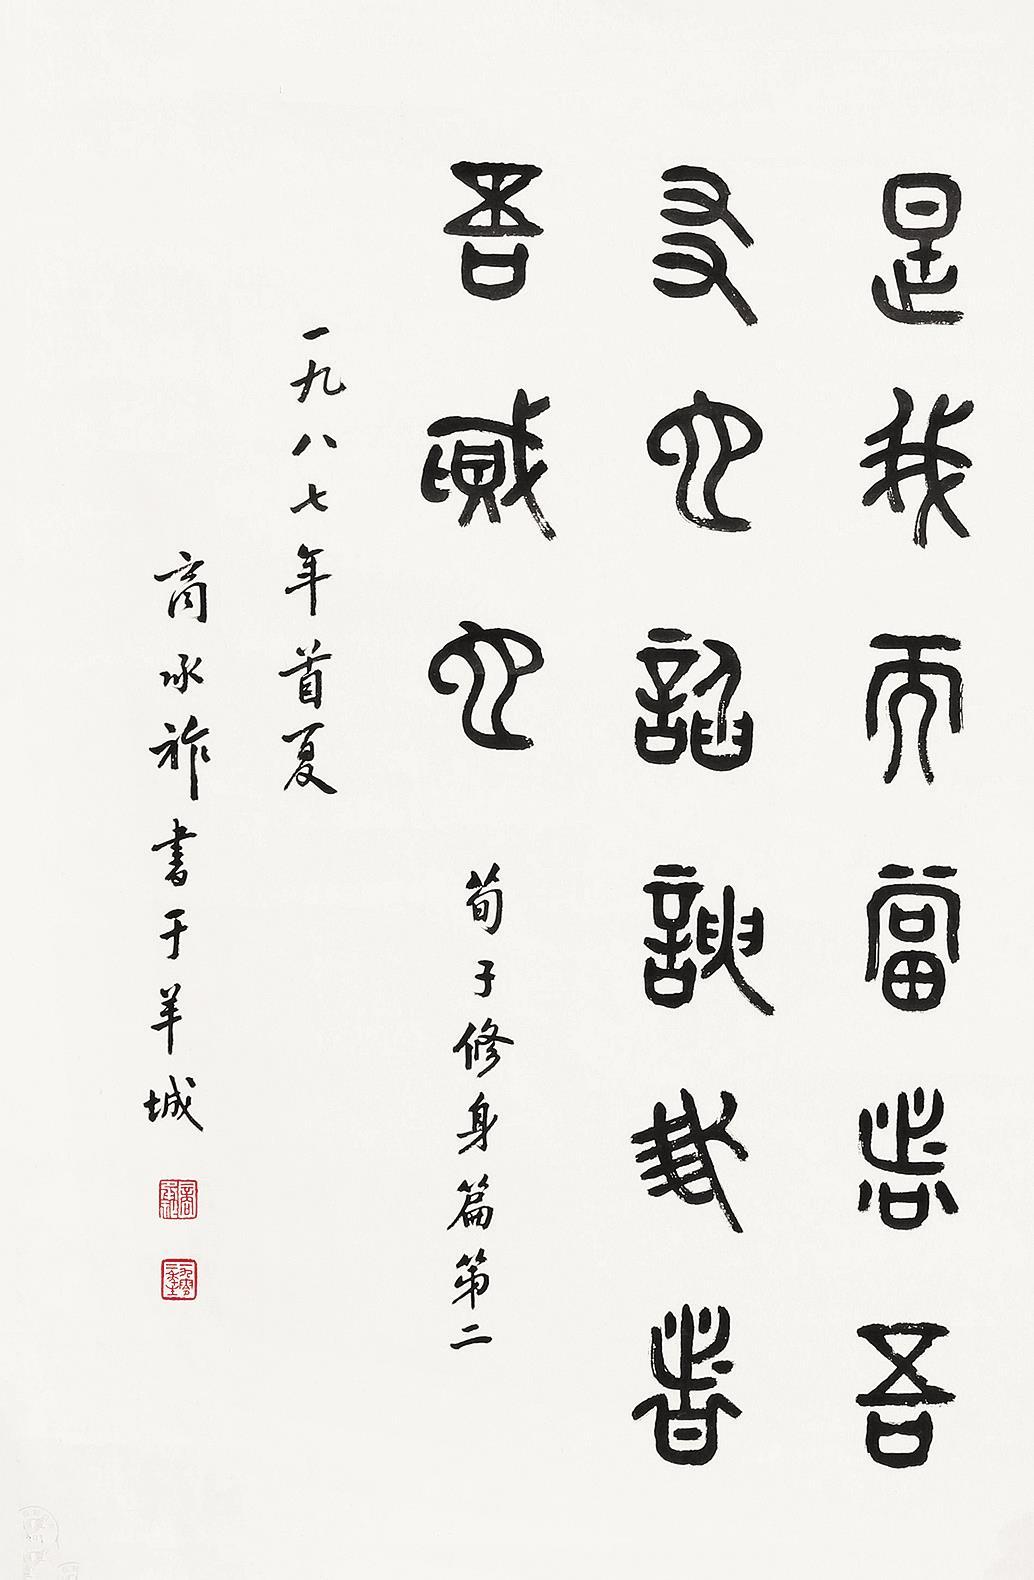 是我而當者吾
友也諂諛我者
吾賊也 荀子修身篇第二
一九八七年首夏
商承祚書于羊城
商承祚